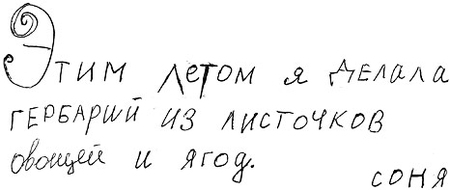 Этим летом я делала
гербарий из листочков
овощей и ягод.
Соня